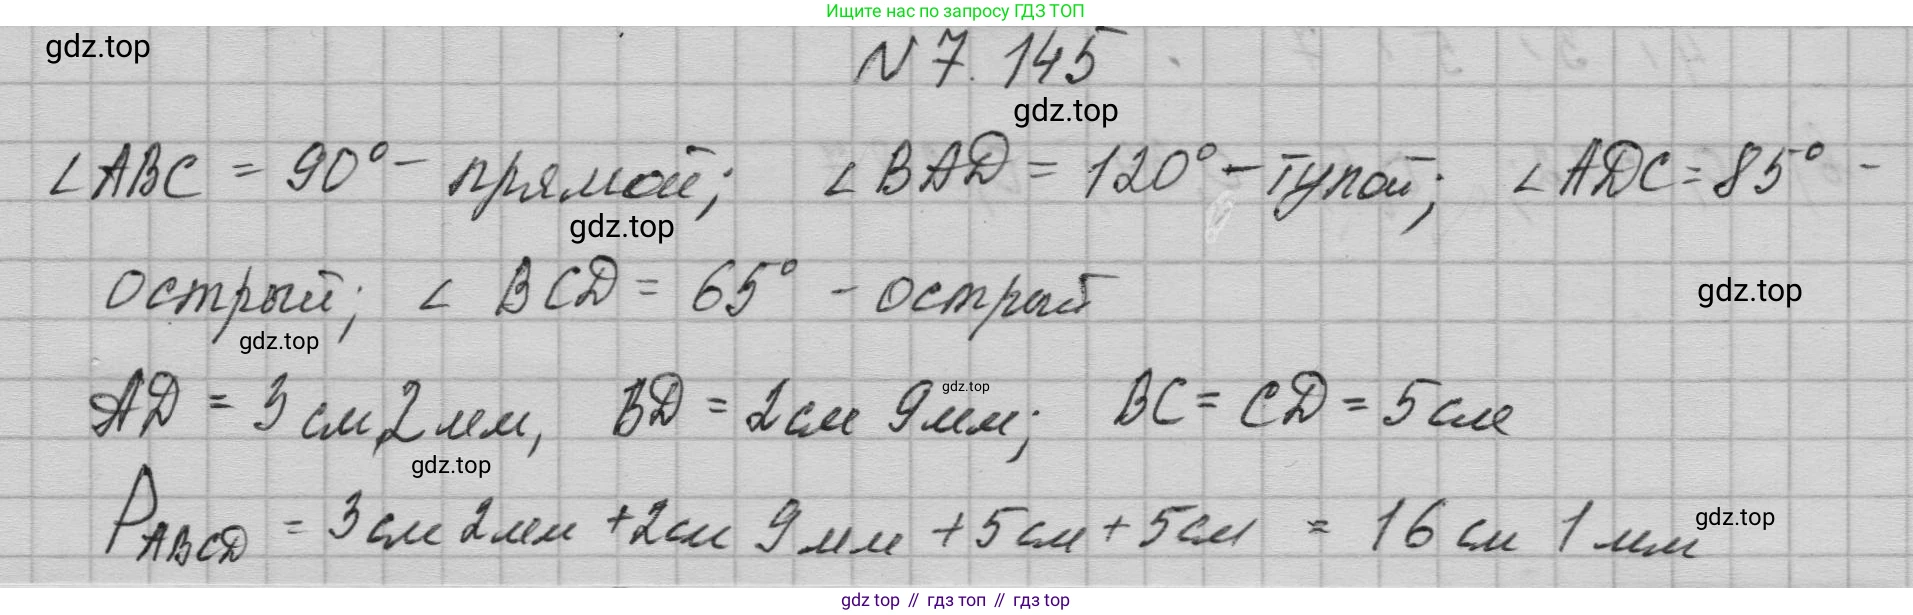 Ищите нас по запросу ГДЗ ТОП
gdz.top
N 7. 145
gdz.top
∠ABC = 90° – прямой; ∠BAD = 120° – тупой; ∠ADC = 85° –
gdz.top
острый; ∠ BCD = 65° – острый
gdz.top
gdz.top
gdz.top
AD = 3 см 2 мм, BD = 2 см 9 мм; BC = CD = 5 см
gdz.top
P ABCD = 3 см 2 мм + 2 см 9 мм + 5 см + 5 см = 16 см 1 мм
gdz.top
gdz top // гдз топ // гдз top